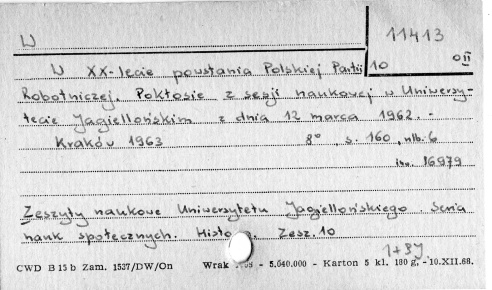 W
11413
W XX-lecie powstania Polskiej Partii 10 0II
Robotniczej. Pokłosie z sesji naukowej w Uniwersy-
tecie Jagiellońskim z dnia 12 marca 1962. -
Kraków 1963 8° , s. 160, nlb. 6
16979
Zeszyty naukowe Uniwersytetu Jagiellońskiego Seria
nauk społecznych. Zesz. 10
1+3J
CWD B 15 b Zam. 1537/DW/On Wrak - 5.040.000 - Karton 5 kl. 180 g, - 10.XII.68.